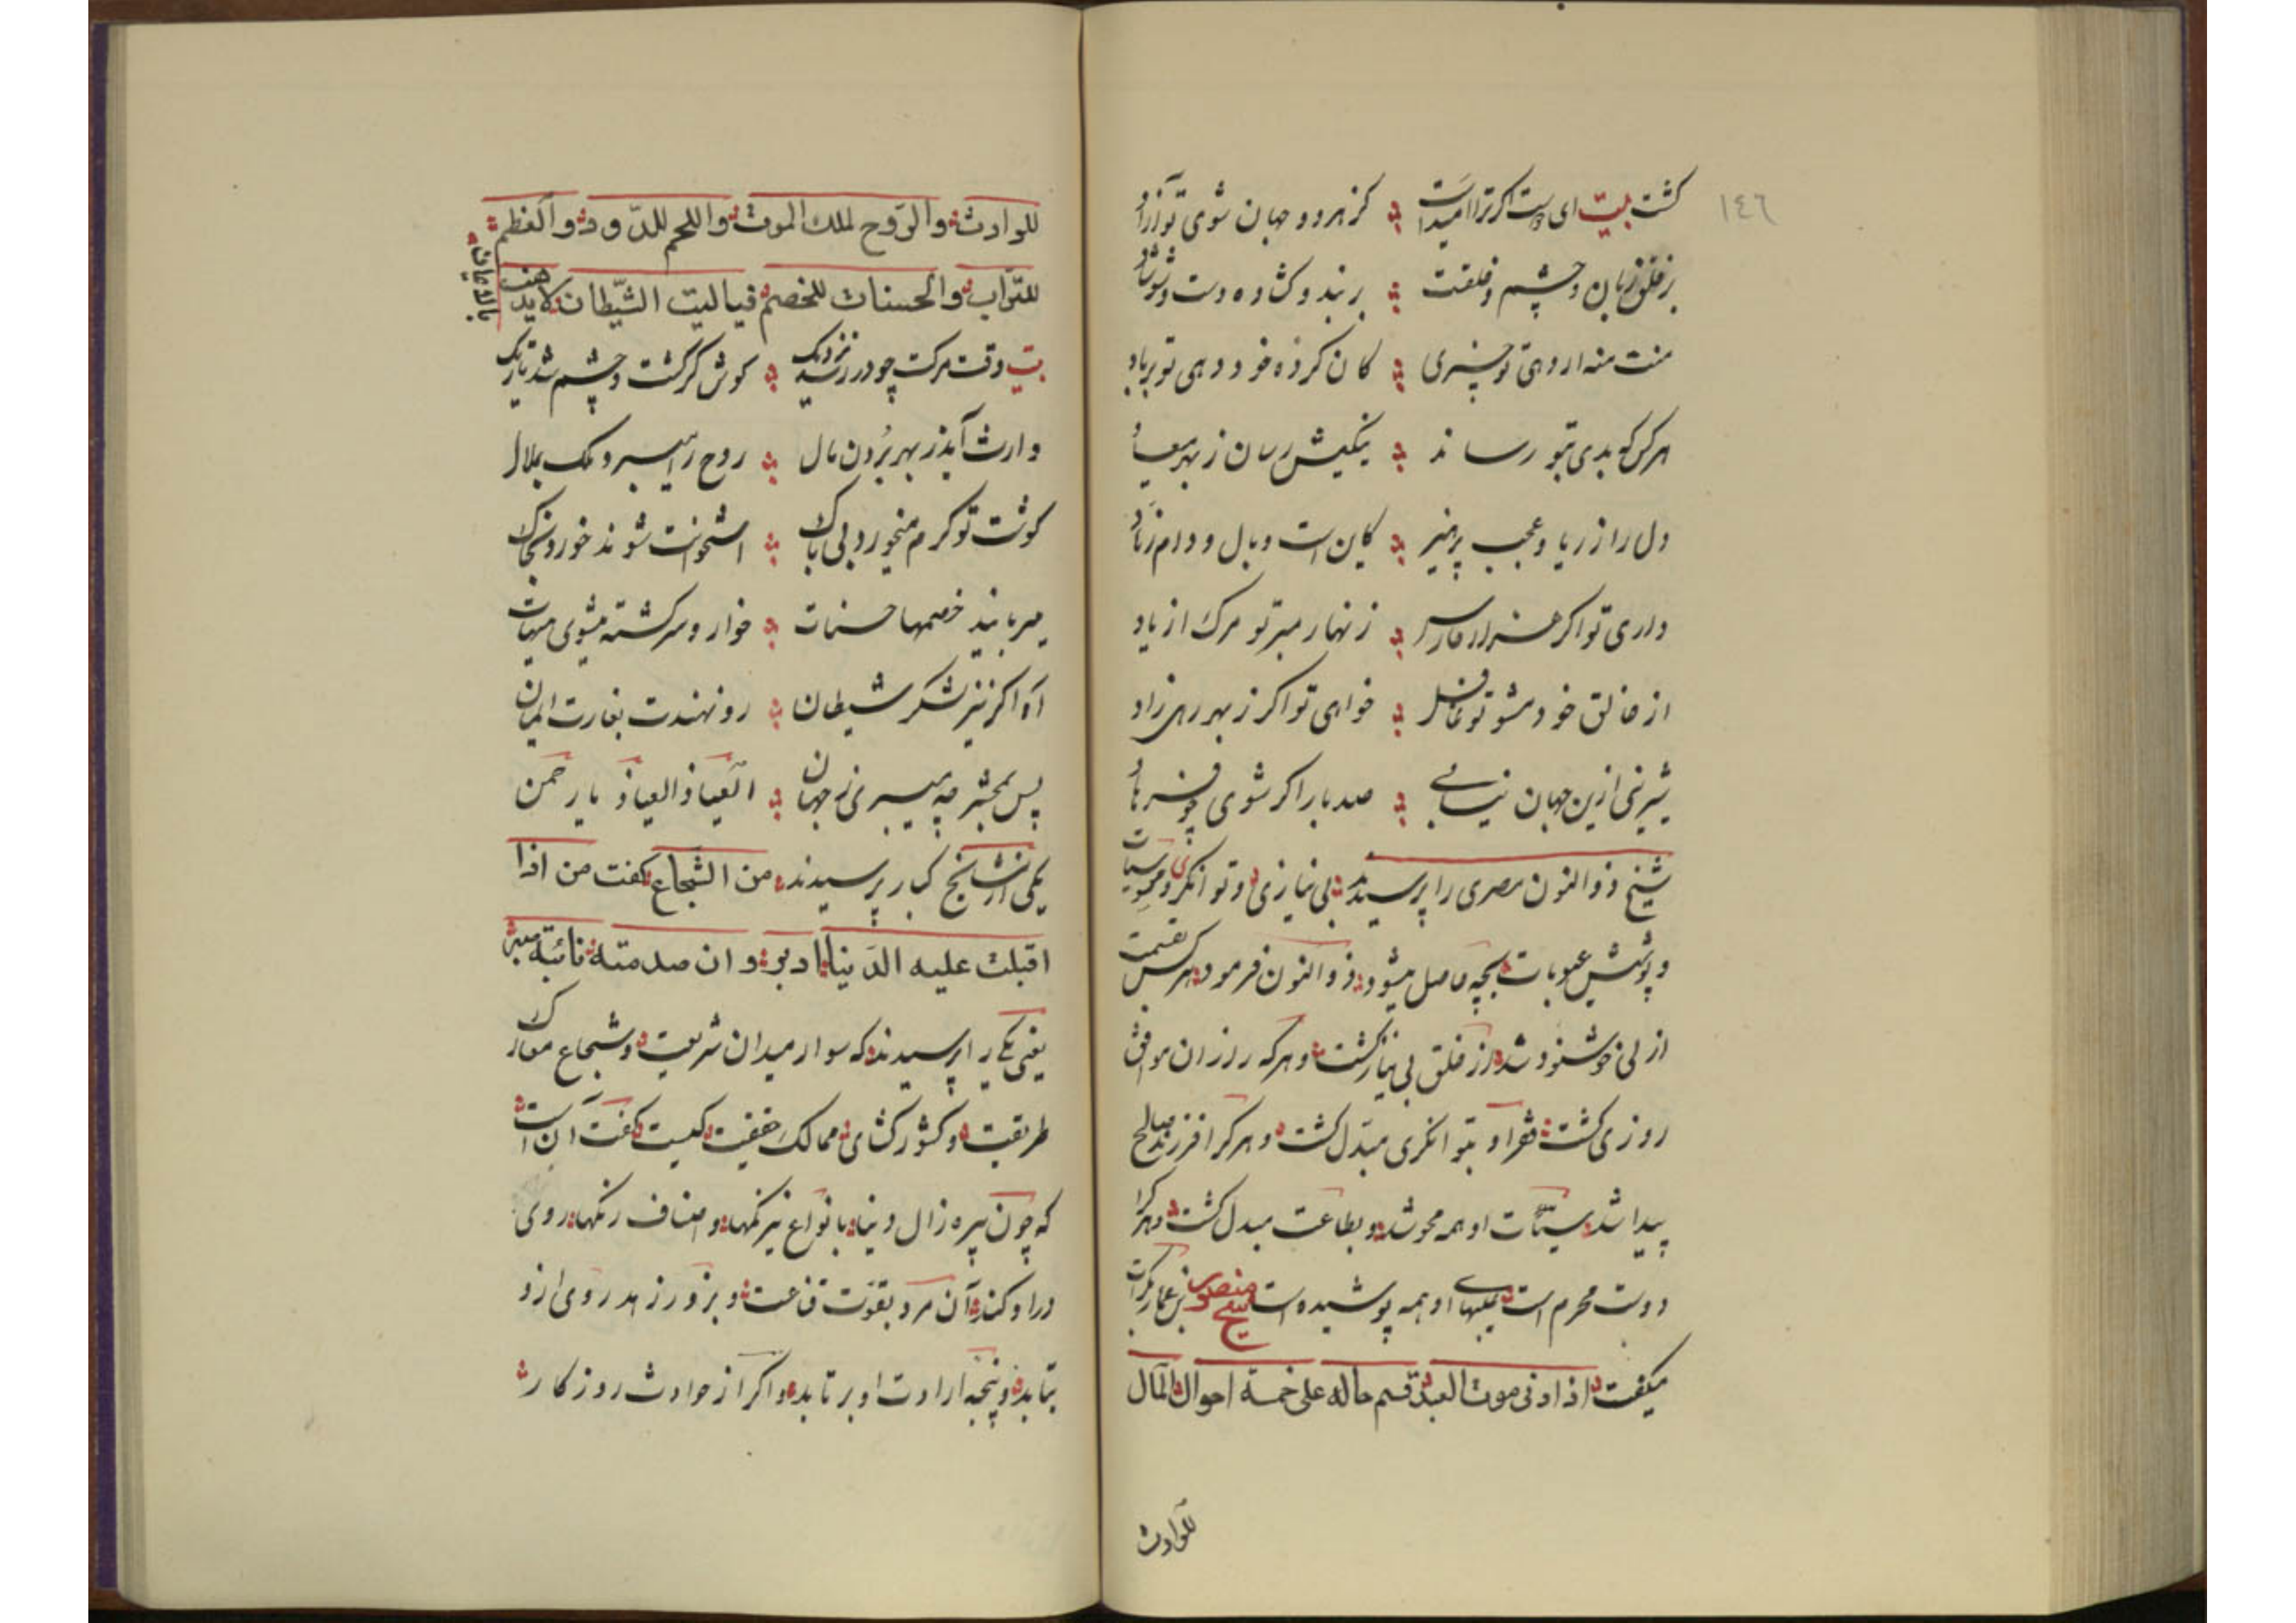 ١٤٦
کشت بیت ای دوست اکر ترا امیداست کز هر دو جهان شوی تو آزاد
بر خلق زبان و چشم و خلقت بربند و کشاده دست و شو شاد
منت منه ار دهی تو چیزی کان کرده خود دهی تو بر باد
هر کس که بدی بتو رساند نیکیش رسان ز بهر میعاد
دل را از ریا و عجب پرهیز کاین است وبال و دام زهاد
داری تو اکر هزار فارس زنهار مبر تو مرک از یاد
از خالق خود مشو تو غافل خواهی تو اکر ز بهر رهی زاد
شیرینی ازین جهان نیابی صد بار اکر شوی چو فرهاد
شیخ ذوالنون مصری را پرسیدند بی نیازی و توانکری و محو سیات
و پوشش عیوبات بچه حاصل میشود ذوالنون فرمود هرکس بقسمت
ازلی خوشنود شد از خلق بی نیاز کشت و هرکه را زن موافق
روزی کشت فقر او بتوانکری مبدل کشت و هرکرا فرزند صالح
پیدا شد سیئات او همه محو شد و بطاعت مبدل کشت و هرکرا
دوست محرم است عیبهای او همه پوشیده است شیخ منصور بن عمار بکرات
میکفت اذا دنی موت العبد قسم حاله علی خمسة احوال المال
للوارث
للوارث والروح لملك الموت واللحم للدود والعظم
للتراب والحسنات للخصم فياليت الشيطان لايذهب
بالايمان
بیت وقت مرکت چو در رسد نزدیک کوش کر کشت و چشم شد تاریک
وارث آید ز بهر بردن مال روح را میبرد ملک بملال
کوشت تو کرم میخورد بی باک استخوانت شوند خورد بخاک
میربایند خصمها حسنات خوار و سرکشته میشوی هیهات
آه اکر نیز لشکر شیطان رو نهندت بغارت ایمان
پس بمحشر چه میبری ز جهان العیاذ العیاذ یا رحمن
یکی از مشایخ کبار پرسیدند من الشجاع کفت من اذا
اقبلت عليه الدنيا ادبر وان صدمته نائبة صبر
یعنی یکی را پرسیدند که سوار میدان شریعت و شجاع معارک
طریقت و کشورکشای ممالک حقیقت کیست کفت آن است
که چون پیره زال دنیا با نواع نیرنکها و اصناف رنکها روی
در او کند آن مرد بقوت قناعت و بزور زهد روی از و
بتابد و پنجه ارادت او برتابد و اکر از حوادث روزکار